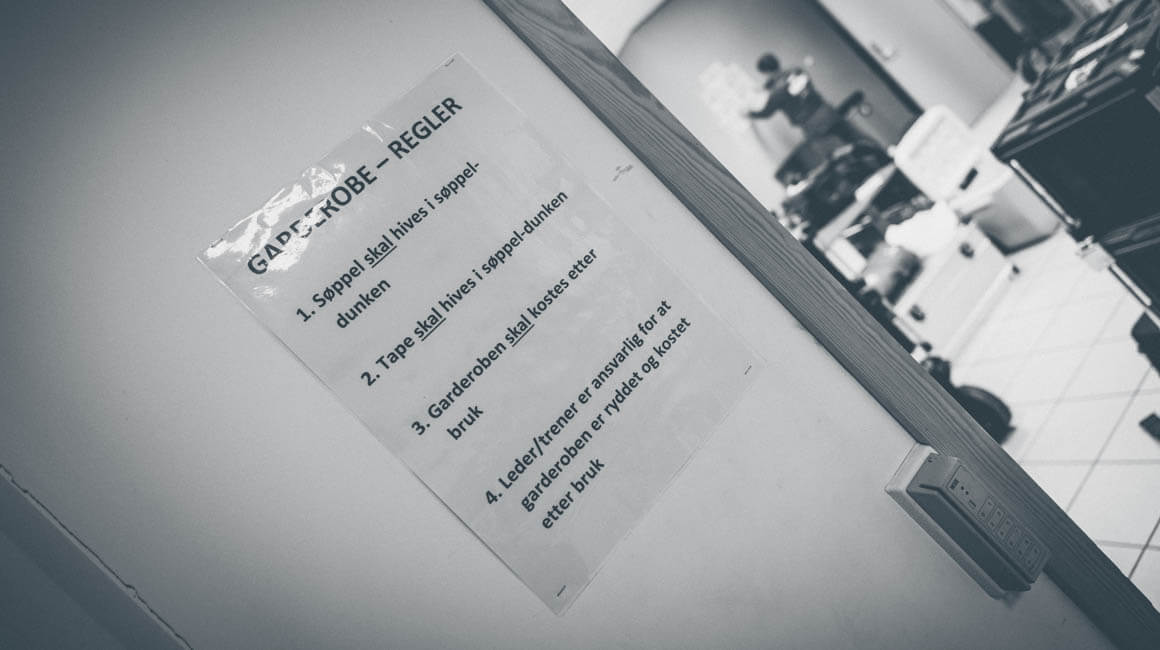 GARDEROBE – REGLER
1. Søppel skal hives i søppel-
dunken
2. Tape skal hives i søppel-dunken
3. Garderoben skal kostes etter
bruk
4. Leder/trener er ansvarlig for at
garderoben er ryddet og kostet
etter bruk